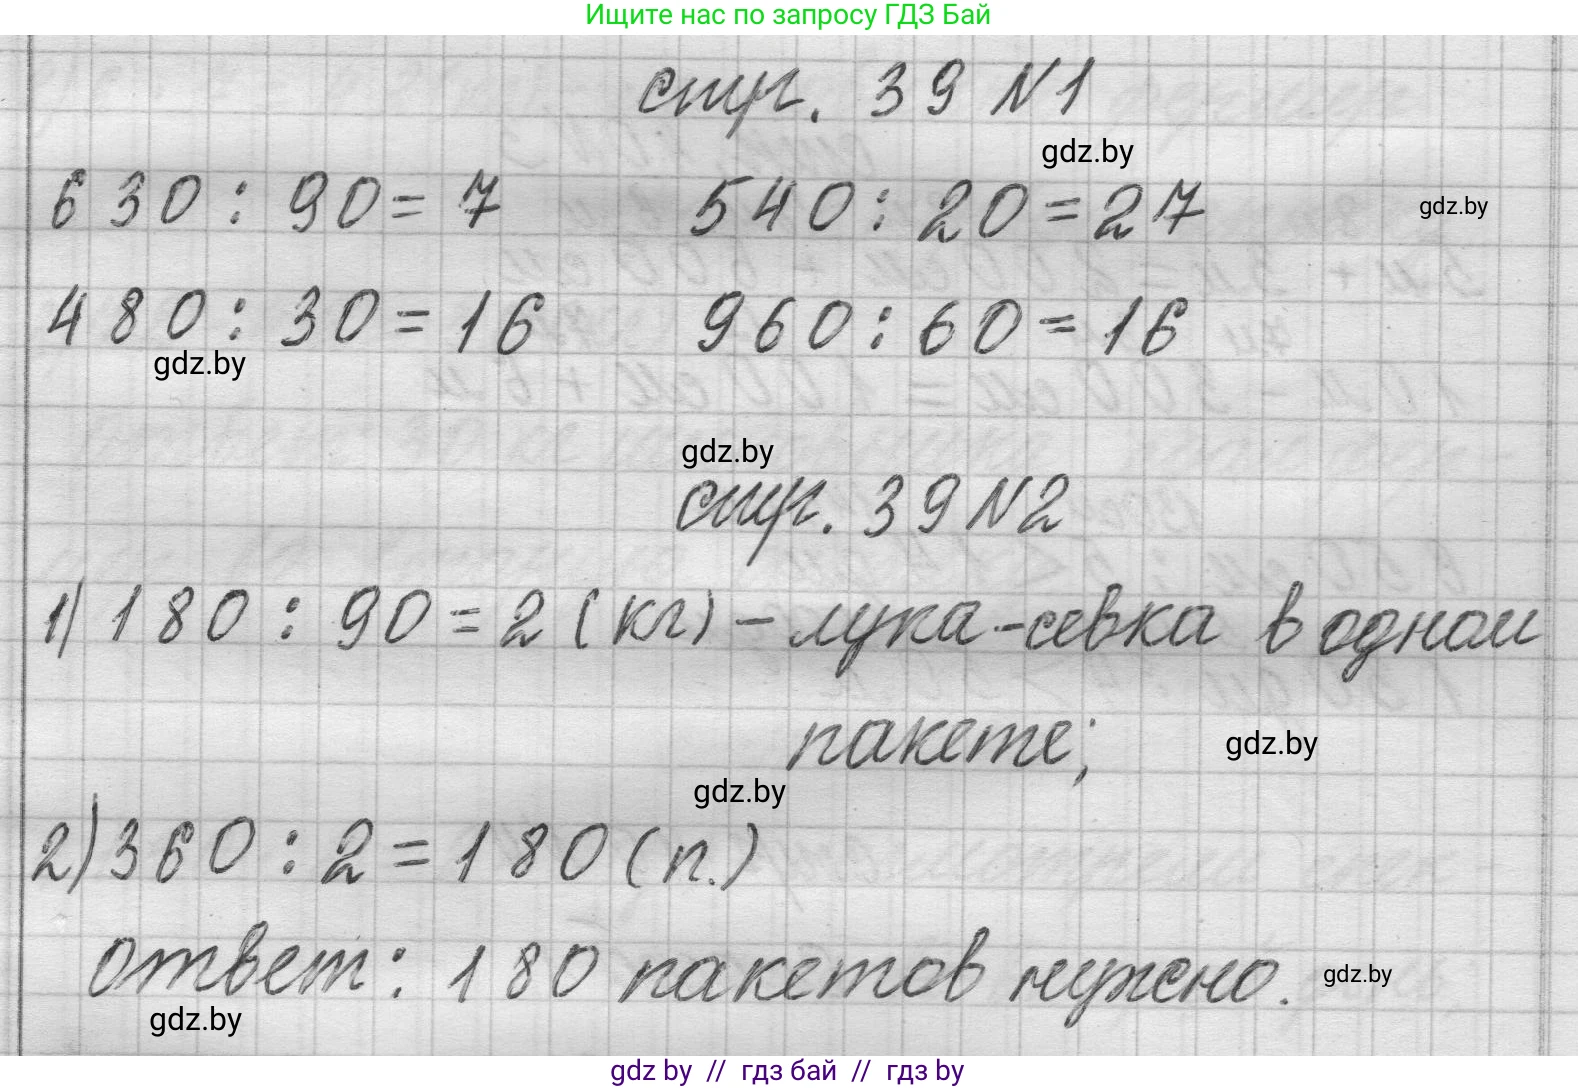 Ищите нас по запросу ГДЗ Бай
стр. 39 N1
gdz.by
630 : 90 = 7 540 : 20 = 27
gdz.by
480 : 30 = 16 960 : 60 = 16
gdz.by
gdz.by
стр. 39 N2
1) 180 : 90 = 2 (кг) – лука-севка в одном
пакете;
gdz.by
gdz.by
2) 360 : 2 = 180 (п.)
ответ: 180 пакетов нужно.
gdz.by
gdz.by
gdz by // гдз бай // gdz by